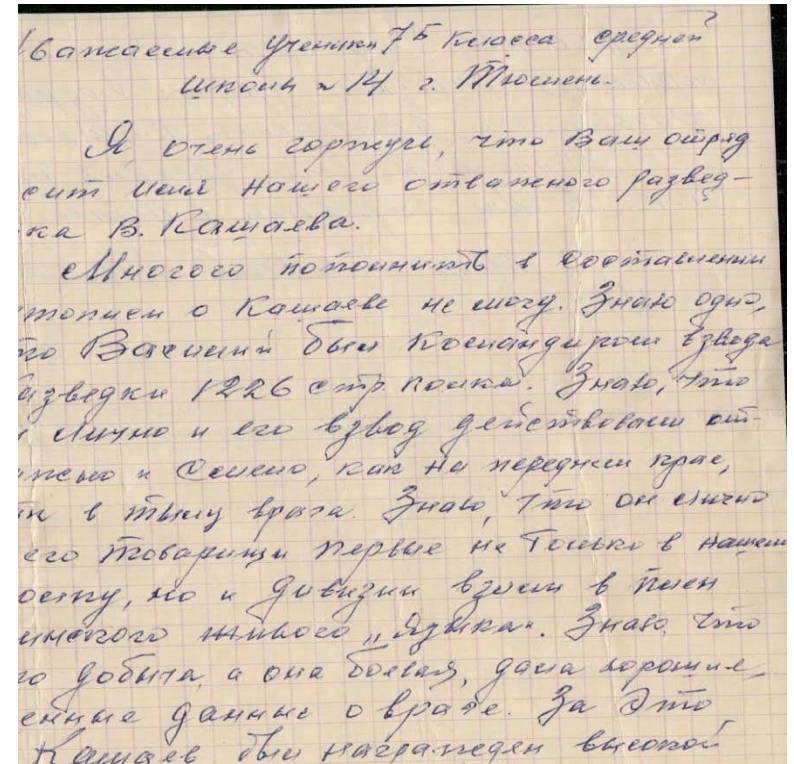 Уважаемые ученики 7Б класса средней
школы № 14 г. Тюмень.
Я очень горжусь, что Ваш отряд
сит имя нашего отважного развед-
ка В. Кашаева.
Многого пополнить в составлении
тописи о Кашаеве не могу. Знаю одно,
то Василий был командиром взвода
азведки 1226 стр. полка. Знаю, что
лично и его взвод действовали от-
жно и смело, как на переднем крае,
ак и в тылу врага. Знаю, что он лично
его товарищи первые не только в нашем
полку, но и дивизии взяли в плен
финского живого „Языка“. Знаю, что
го добыча, а она боевая, дала хорошие,
енные данные о враге. За это
Кашаев был награжден высокой